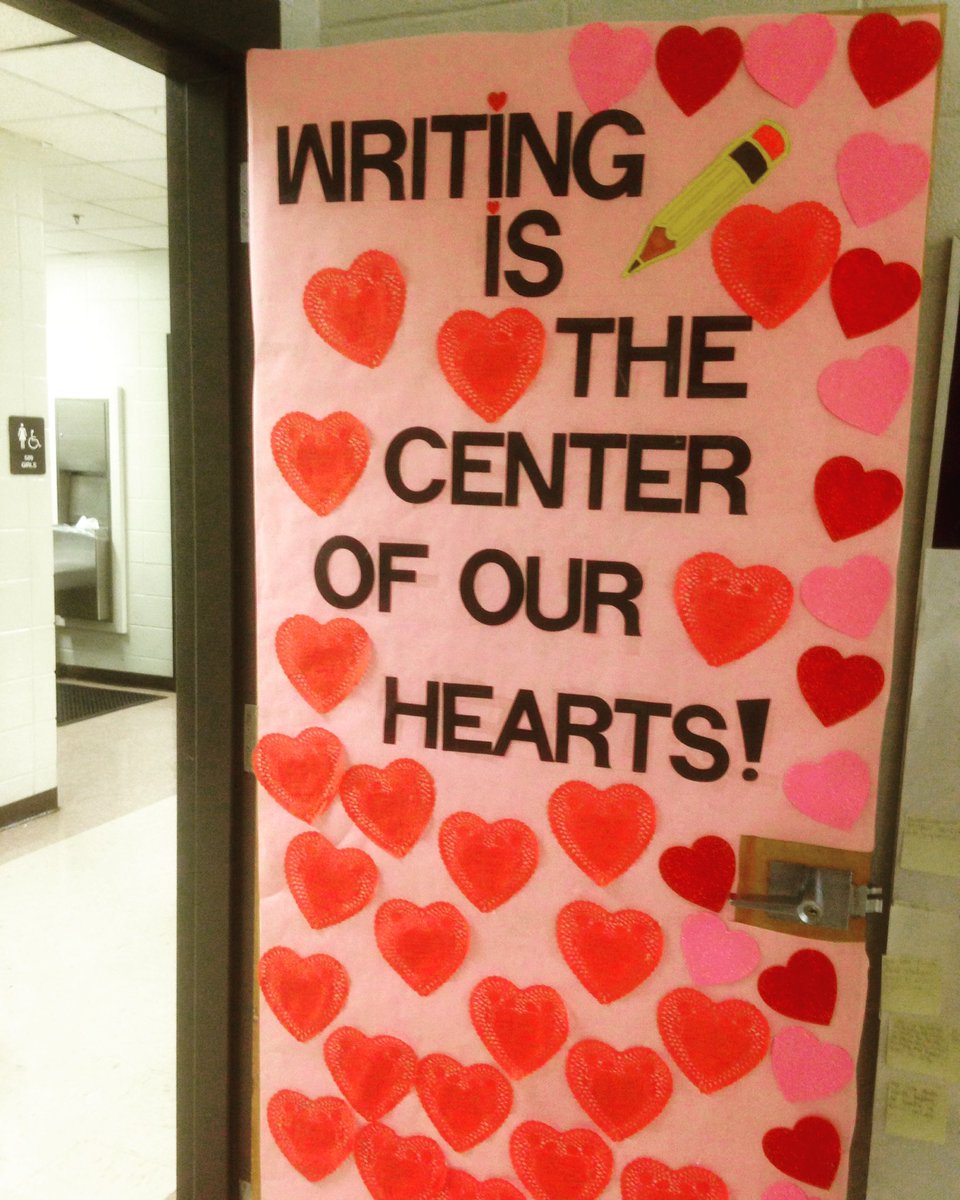 WRITING
IS
THE
CENTER
OF OUR
HEARTS!
GIRLS